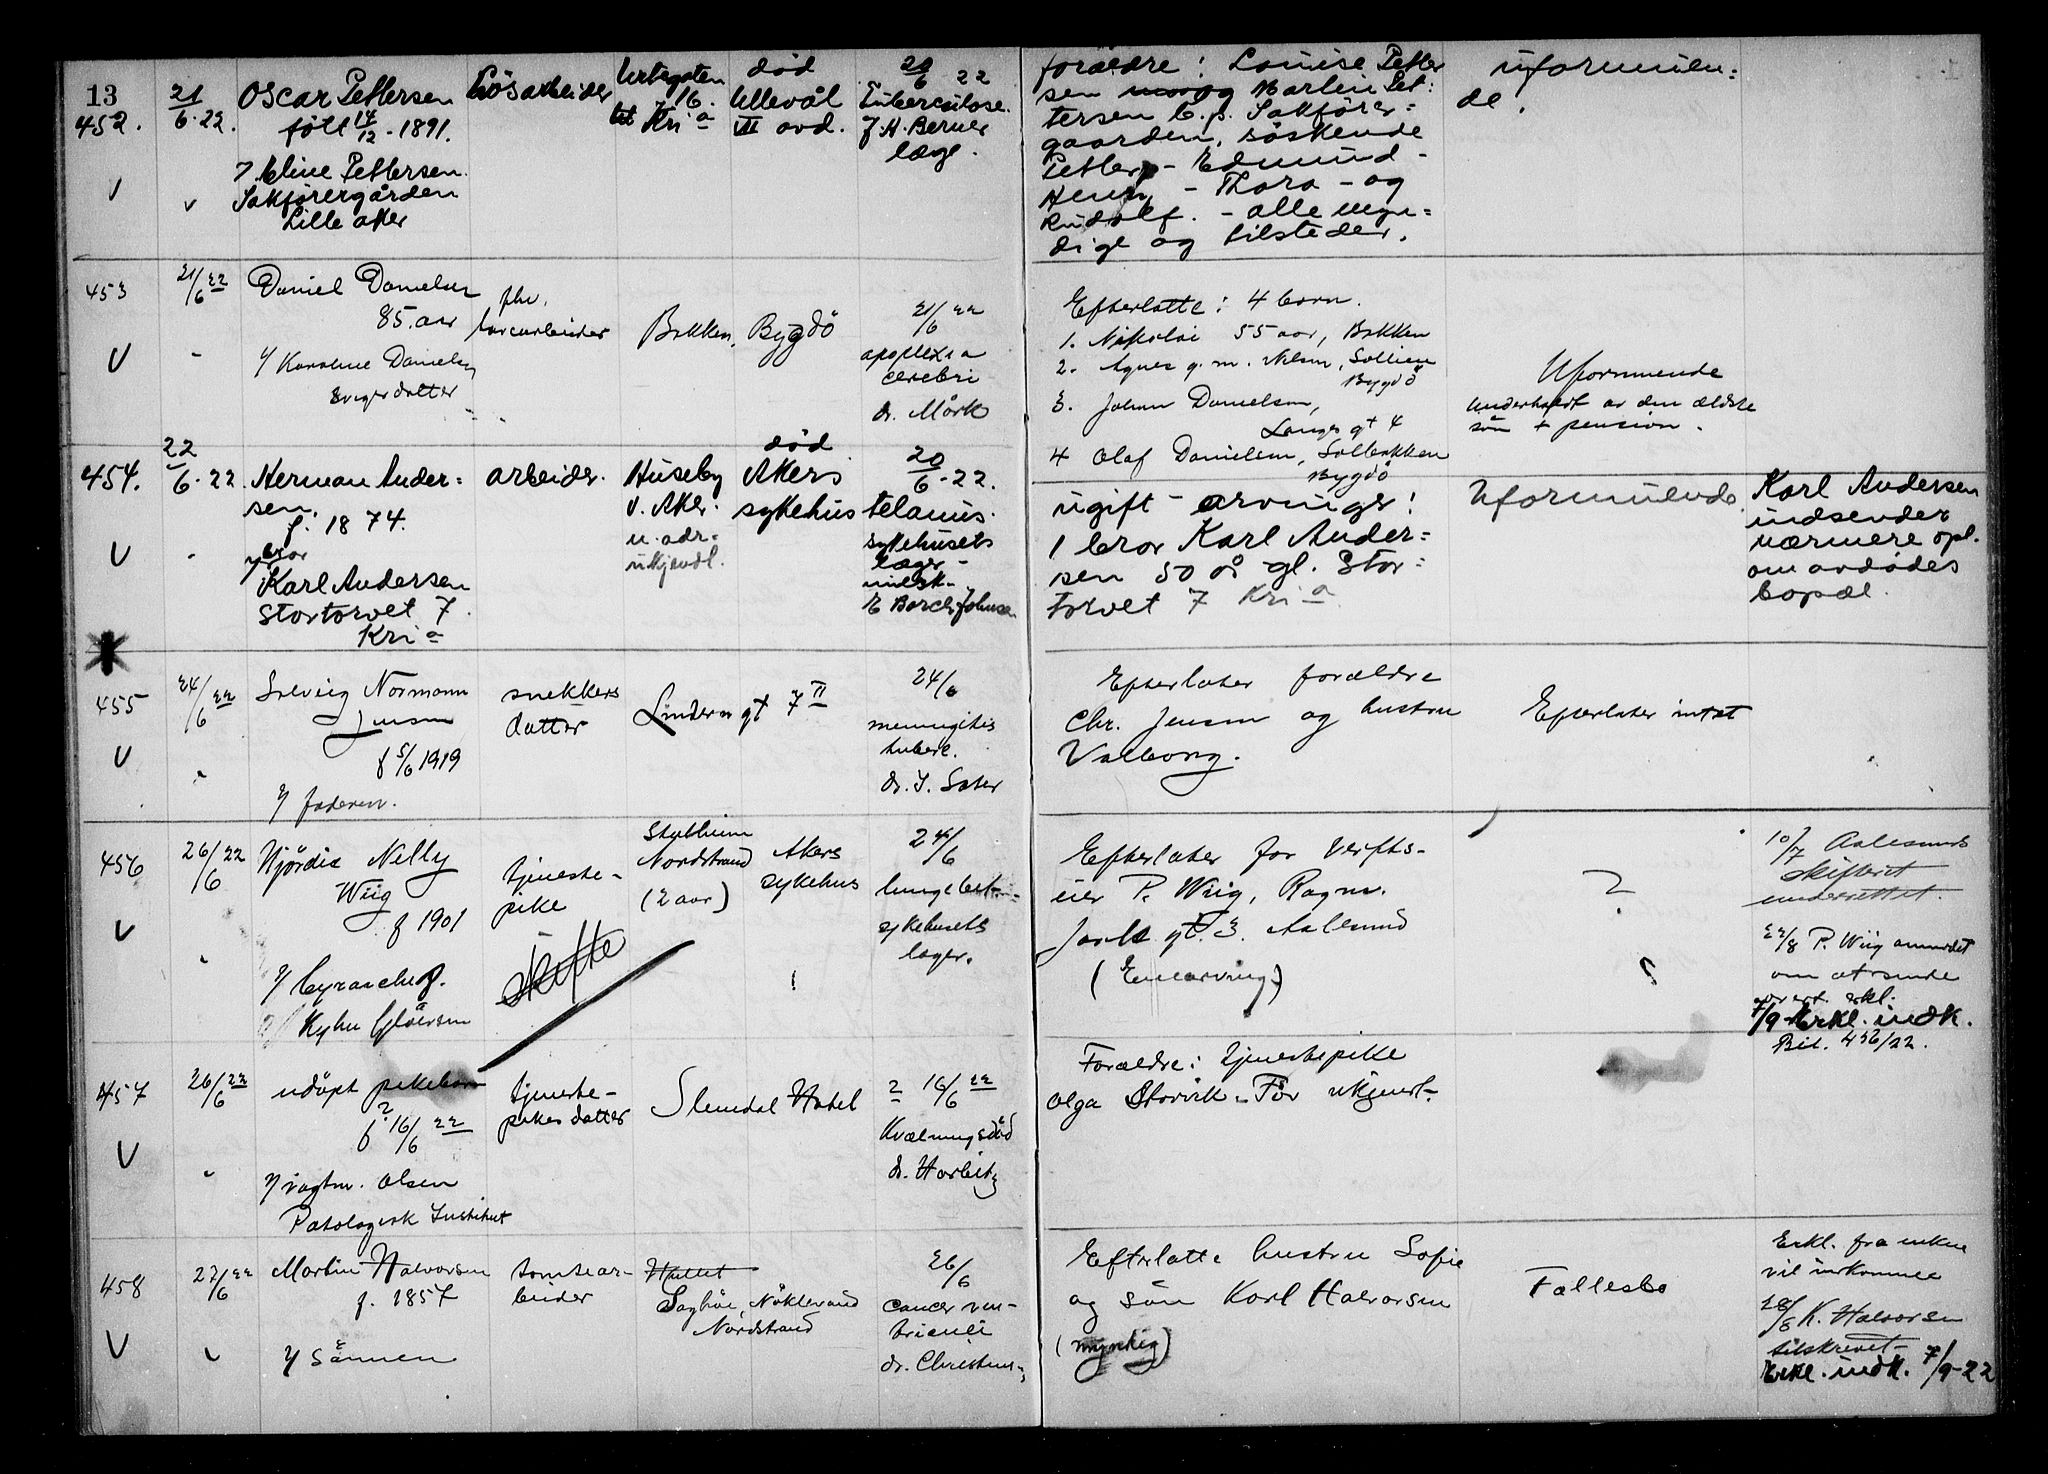 13
452.
21/6.22.
Oscar Pettersen
født 14/12 - 1891.
v. Eline Pettersen.
Sakførergården
Lille aker
Løsarbeider
Urtegaten
16.
Kri a
død
Ullevål
III avd.
20/6 22
Tuberculose.
J. H. Berner
læge.
forældre: Louise Petter
sen Martin Pet:
tersen b. p. Sakfører:
gaarden, søskende
Petter - Edmund -
Henry - Thora - og
Rudolf. - alle myn:
dige og tilsteder.
uformuen:
de.
453
21/6 22
Daniel Danielsen
85. aar
v/ Karoline Danielsen
svigerdatter
fhv.
Bakken, Bygdö
21/6 22
apoplexia
cerebri
dr. Mörk
Efterlatte: 4 barn.
1. Nikolai 55 aar, Bakken
2. Agnes g. m. Nilsen, Sollien
Bygdö
3. Johan Danielsen,
Langes gt 4
4 Olaf Danielsen, Solbakken
Bygdö
Uformuende
underholdt av den ældste
sön + pension.
454.
22/6.22
Herman Ander:
sen.
f. 1874.
v/ bror
Karl Andersen
Stortorvet 7.
Kri a
arbeider.
Huseby
v. Aker.
n. adr.
ukjendt.
død
Akers
sykehus
20/6.22.
tetanus.
sykehusets
læger -
E Borch Johnsen
ugift - arvinger:
1 bror Karl Ander:
sen 50 år gl. Stor:
torvet 7 Kri a
Uformuende
Karl Andersen
indsender
nærmere opl.
om avdødes
bopæl.
455
24/6 22
Solveig Normann
Jensen
f 5/6 1919
v/ faderen.
snekkers
datter
Lindern gt 7 II
24/6
meningitis
tuberc.
dr. I. Sater
Efterlater forældre
Chr. Jensen og hustru
Valborg.
Efterlater intet
456
26/6 22
Hjördis Nelly
Wiig
f 1901
v/ byraachef.
Kyhn Gloersen
tjeneste-
pike
skifte
Nordstrand
(2 aar)
Akers
sykehus
24/6
lungebet.
sykehusets
læger.
Efterlater far verfts-
eier P. Wiig, Ragnv.
Jarls gt. 3. Aalesund
(Enearving)
?
10/7 Aalesunds
skifteret
underrettet.
22/8 P. Wiig anmodet
om at sende
erkl.
7/9 Erkl. indk.
Bil. 456/22.
457
26/6 22
udöpt pikebarn
f ? 16/6 22
v/ vagtm. Olsen
Patologisk Institut
tjeneste-
pikes datter
Slemdal Hotel
? 16/6 22
Kvælningsdöd
dr. Harbitz
Forældre: tjenestepike
Olga Storvik - Far ukjent -
458
27/6 22
Martin Halvorsen
f. 1857
v/ sönnen
tomtear-
beider
Saghöi, Nöklevand
Nordstrand
26/6
cancer ven-
triculi
dr. Christens-
Efterlatte hustru Sofie
og sön Karl Halvorsen
(myndig)
Fællesbo
Erkl. fra enken
vil inkomme
28/8 K. Halvorsen
tilskrevet -
Erkl. indk. 7/9-22